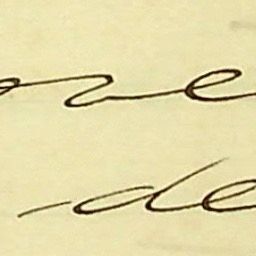 ove
de